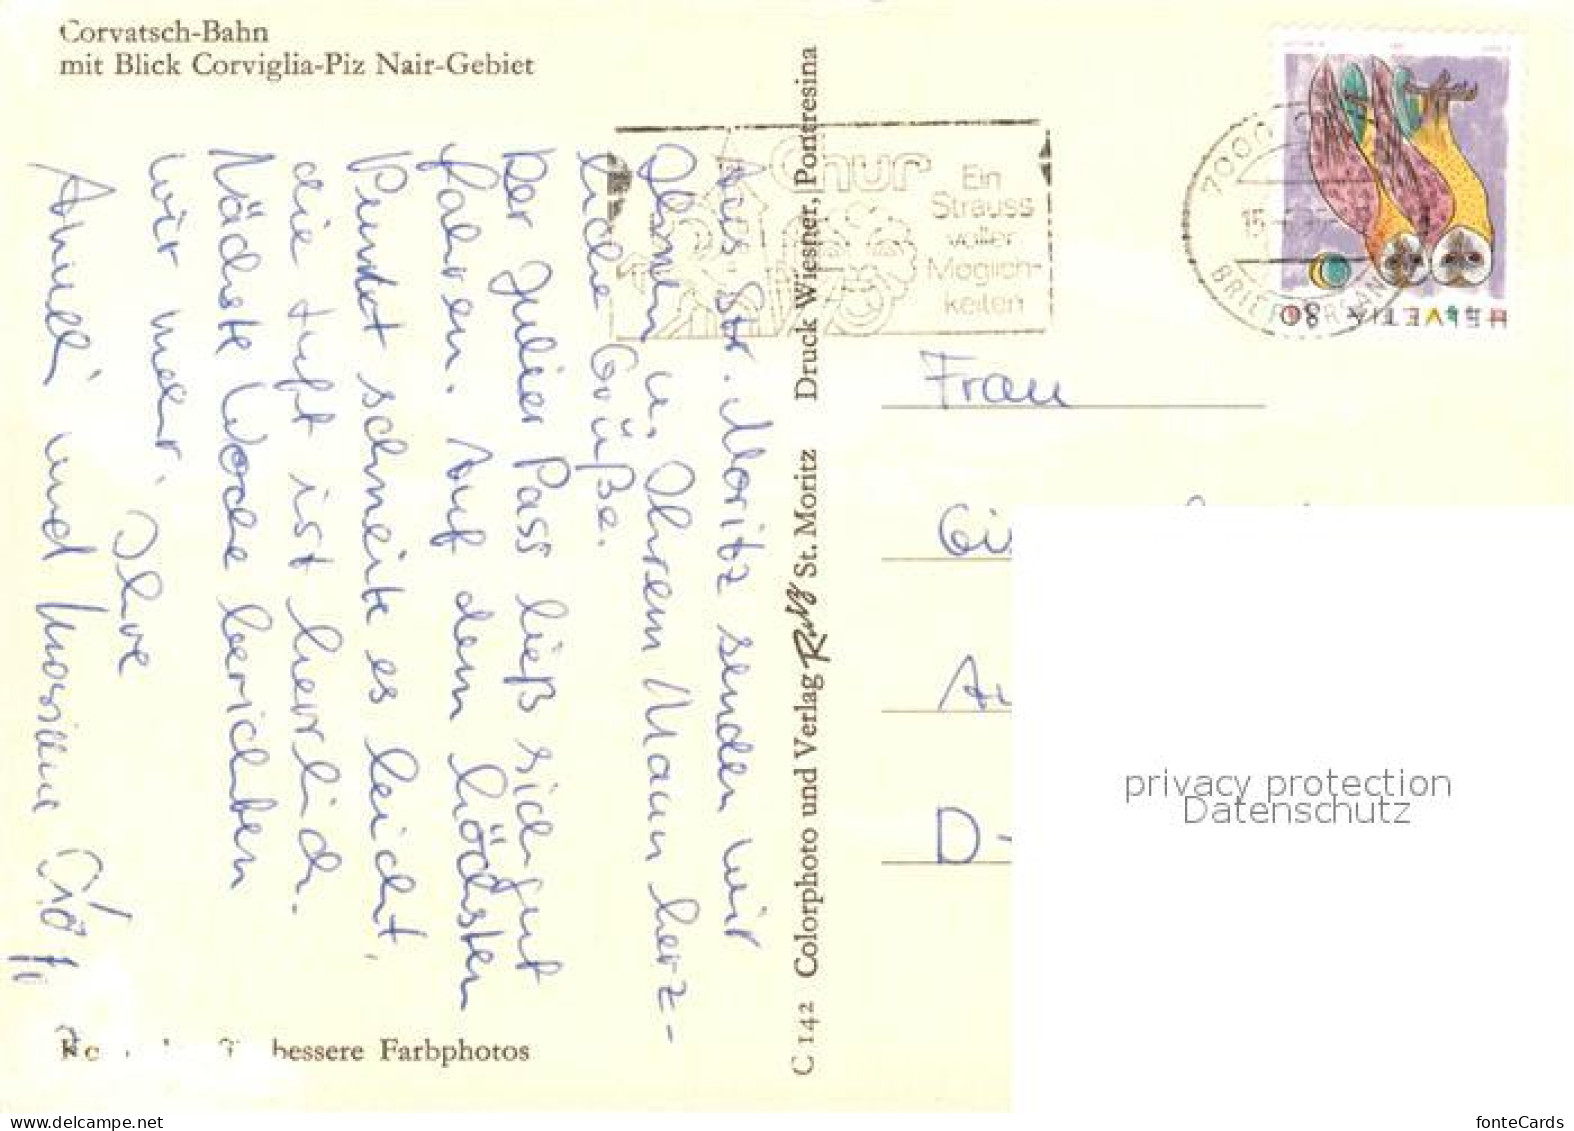 Corvatsch-Bahn
mit Blick Corviglia-Piz Nair-Gebiet
Aus St. Moritz senden wir
Ihnen u. Ihrem Mann herz-
liche Grüße.
Der Julier Pass ließ sich gut
fahren. Auf dem höchsten
Punkt schneite es leicht,
die Luft ist herrlich.
Nächste Woche berichten
wir mehr. Ihre
und
bessere Farbphotos
C 142 Colorphoto und Verlag Rutz St. Moritz Druck Wiesner, Pontresina
Chur
Ein
Strauss
voller
Möglich-
keiten
7000
15
HELVETIA 80
Frau
Gi
Au
D-
privacy protection
Datenschutz
www.delcampe.net
fonteCards